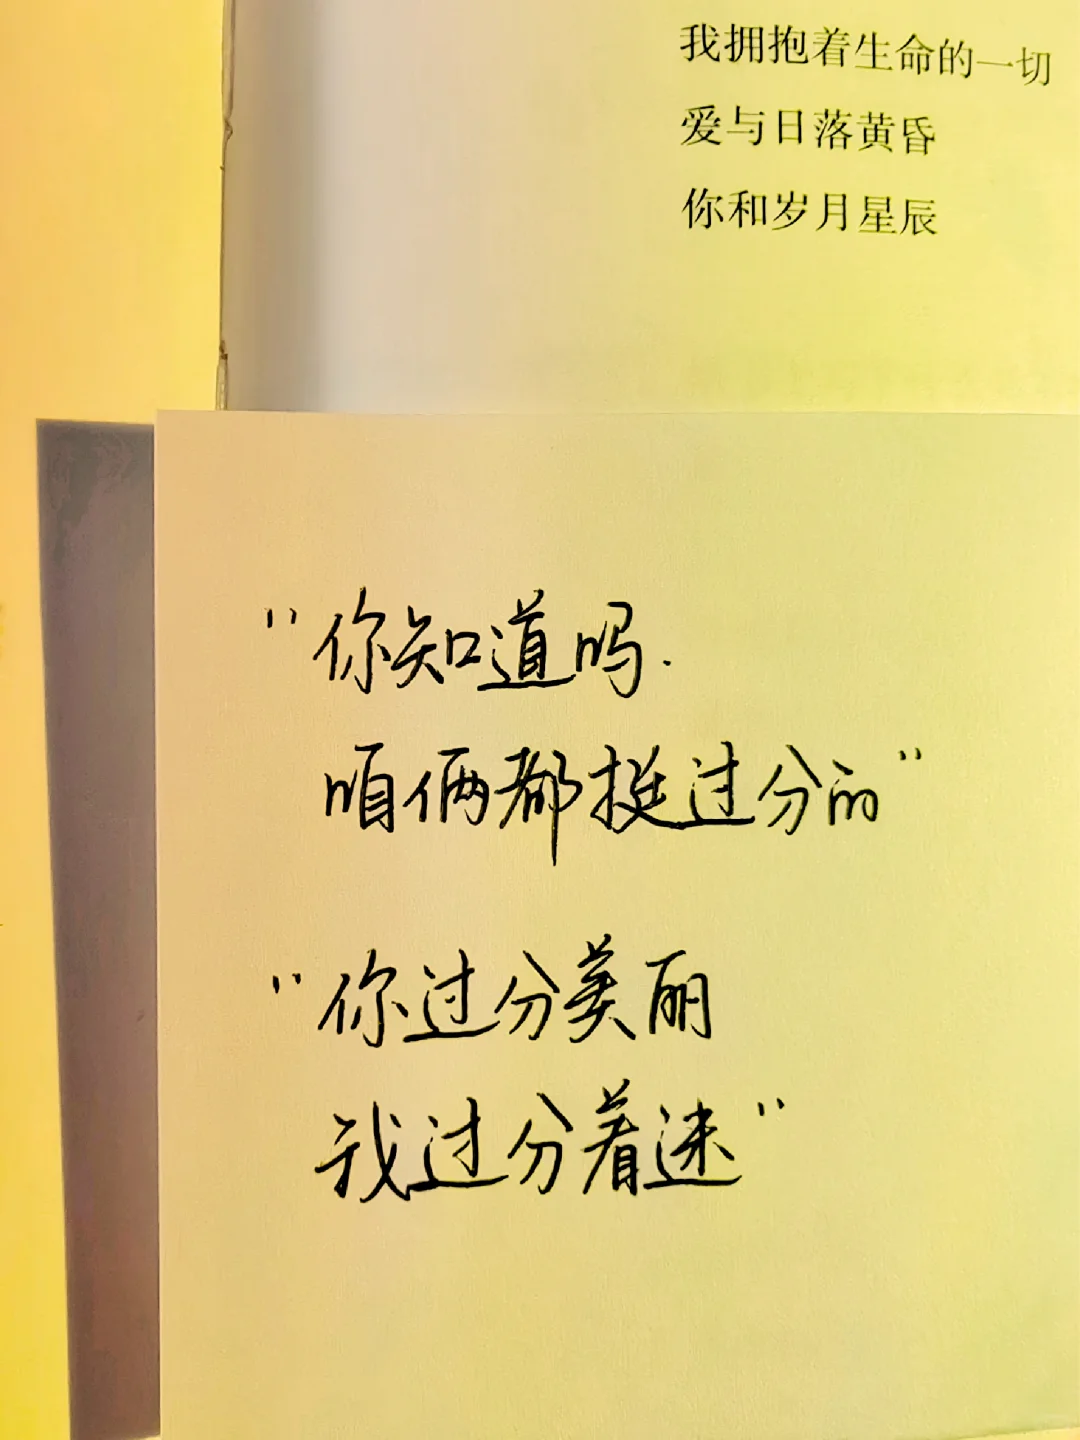 我拥抱着生命的一切
爱与日落黄昏
你和岁月星辰
"你知道吗.
咱俩都挺过分的"
"你过分美丽
我过分着迷"